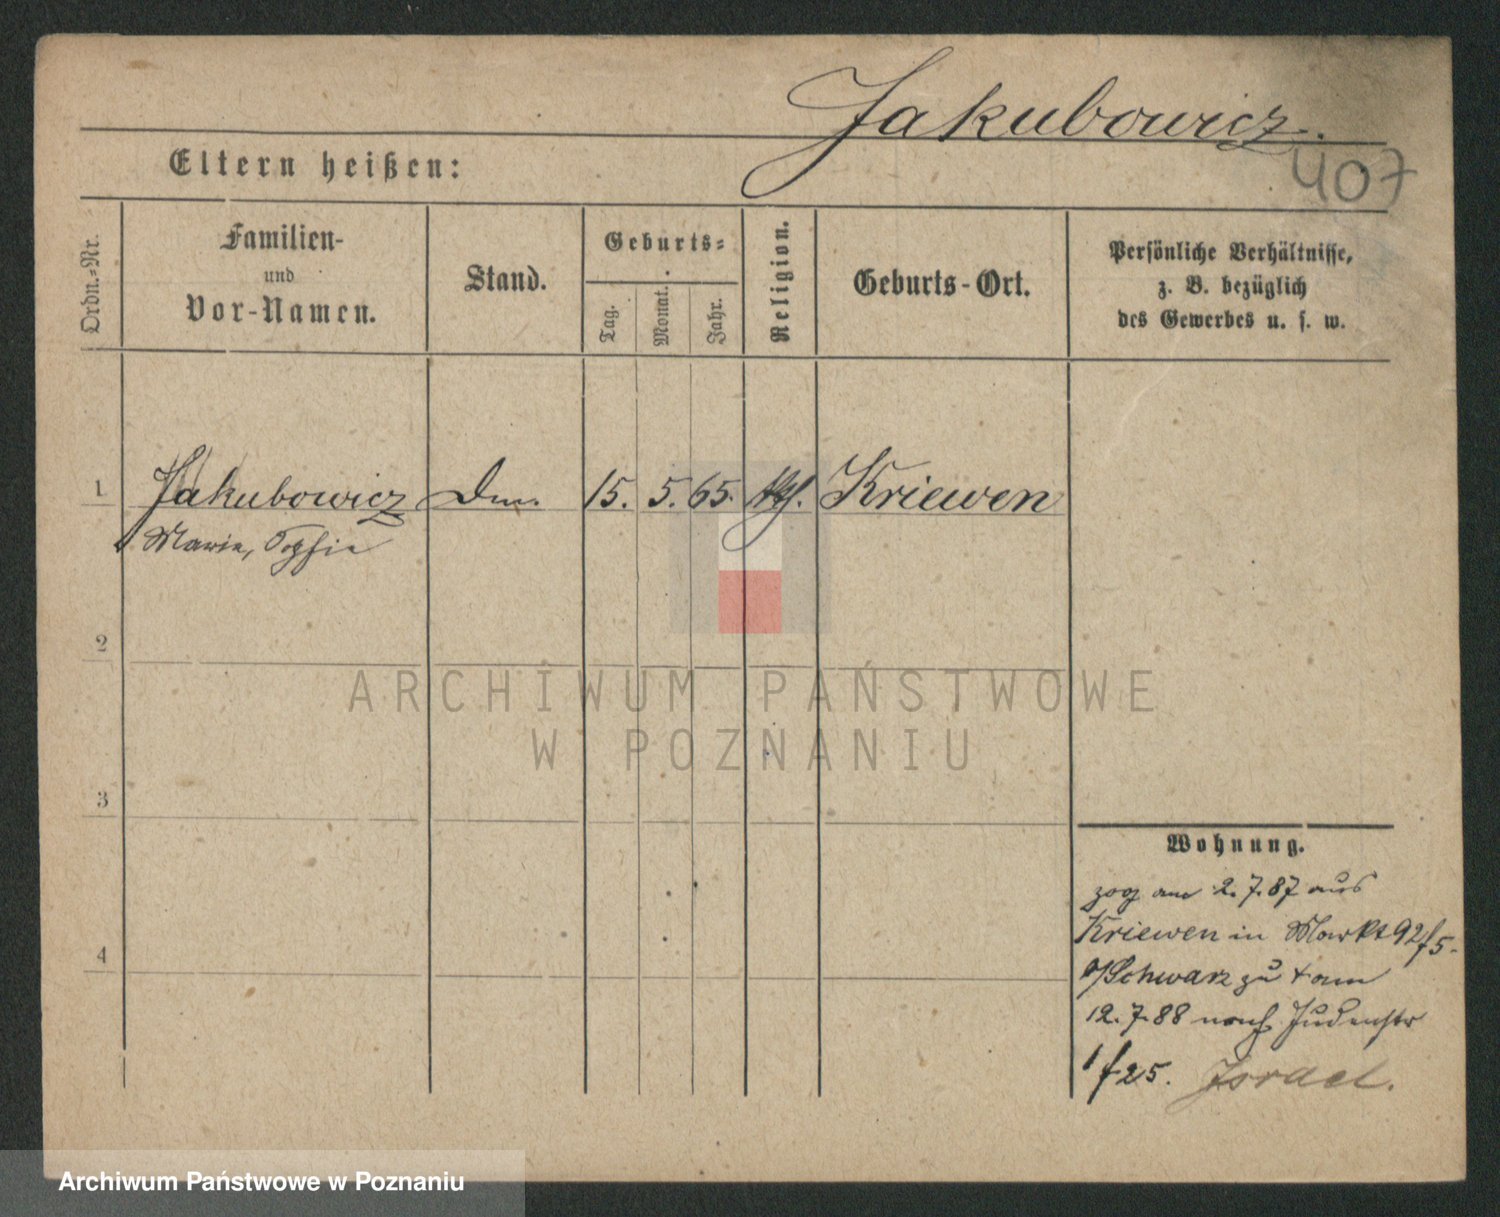 Jakubowicz.
407
Eltern heißen:
Ordn.-Nr.
Familien-
und
Vor-Namen.
Stand.
Geburts-
Tag.
Monat.
Jahr.
Religion.
Geburts-Ort.
Persönliche Verhältnisse,
z. B. bezüglich
des Gewerbes u. s. w.
1 Jakubowicz 15. 5. 65. Kriewen
Marie, Sophie
2
3
4
Wohnung.
zog am 2.7.87 aus
Kriewen in Markt 92/5.
Schwarz zu + am
12.7.88 nach Judenstr
1/25. Israel.
ARCHIWUM PAŃSTWOWE
W POZNANIU
Archiwum Państwowe w Poznaniu